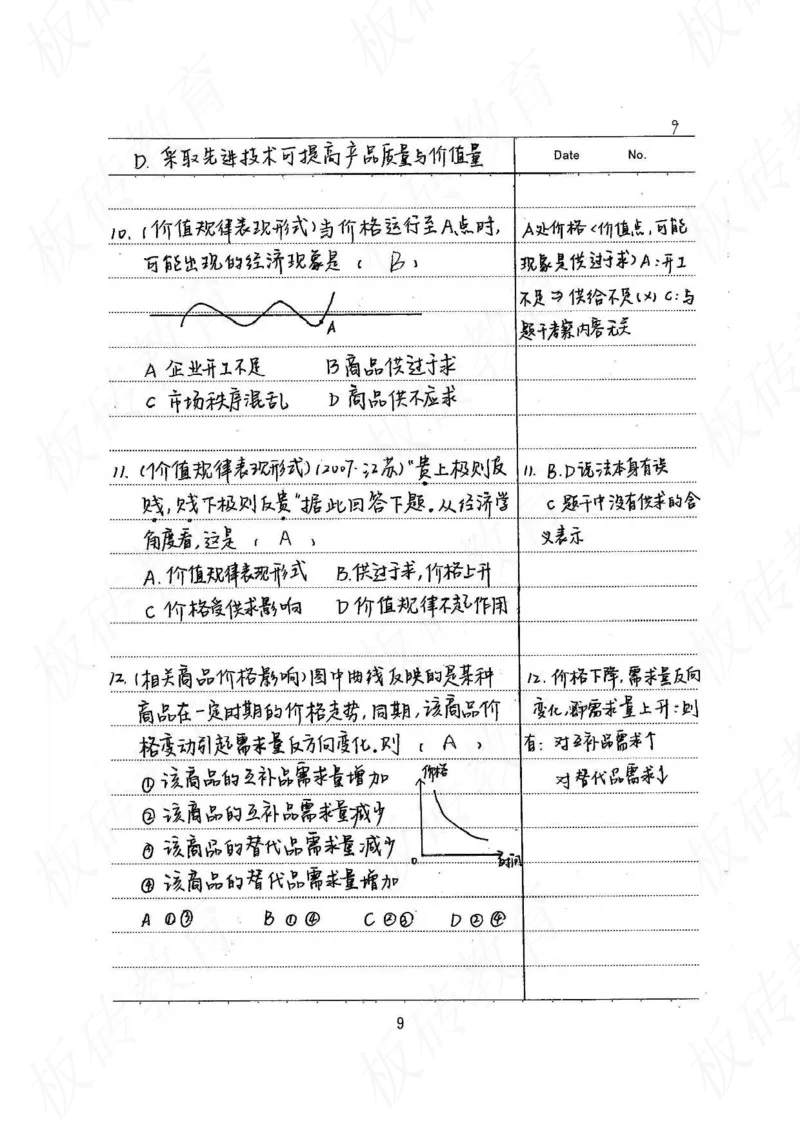 9
D. 采取先进技术可提高产品质量与价值量
Date No.
10. (价值规律表现形式)当价格运行至A点时,
可能出现的经济现象是 ( B )
A
A 企业开工不足 B 商品供过于求
C 市场秩序混乱 D 商品供不应求
A处价格<价值点,可能
现象是供过于求) A:开工
不足⇒供给不足(×) C:与
题干考察内容无关
11. (价值规律表现形式)(2007·江苏)"贵上极则反
贱,贱下极则反贵"据此回答下题。从经济学
角度看,这是 ( A )
A. 价值规律表现形式 B.供过于求,价格上升
C 价格受供求影响 D 价值规律不起作用
11. B.D说法本身有误
C 题干中没有供求的含
义表示
12. (相关商品价格影响)图中曲线反映的是某种
商品在一定时期的价格走势,同期,该商品价
格变动引起需求量反方向变化。则 ( A )
① 该商品的互补品需求量增加
② 该商品的互补品需求量减少
③ 该商品的替代品需求量减少
④ 该商品的替代品需求量增加
价格
0
时间
A ①③ B ①④ C ②③ D ②④
12. 价格下降,需求量反向
变化,即需求量上升∴则
有: 对互补品需求↑
对替代品需求↓
9
板砖教育